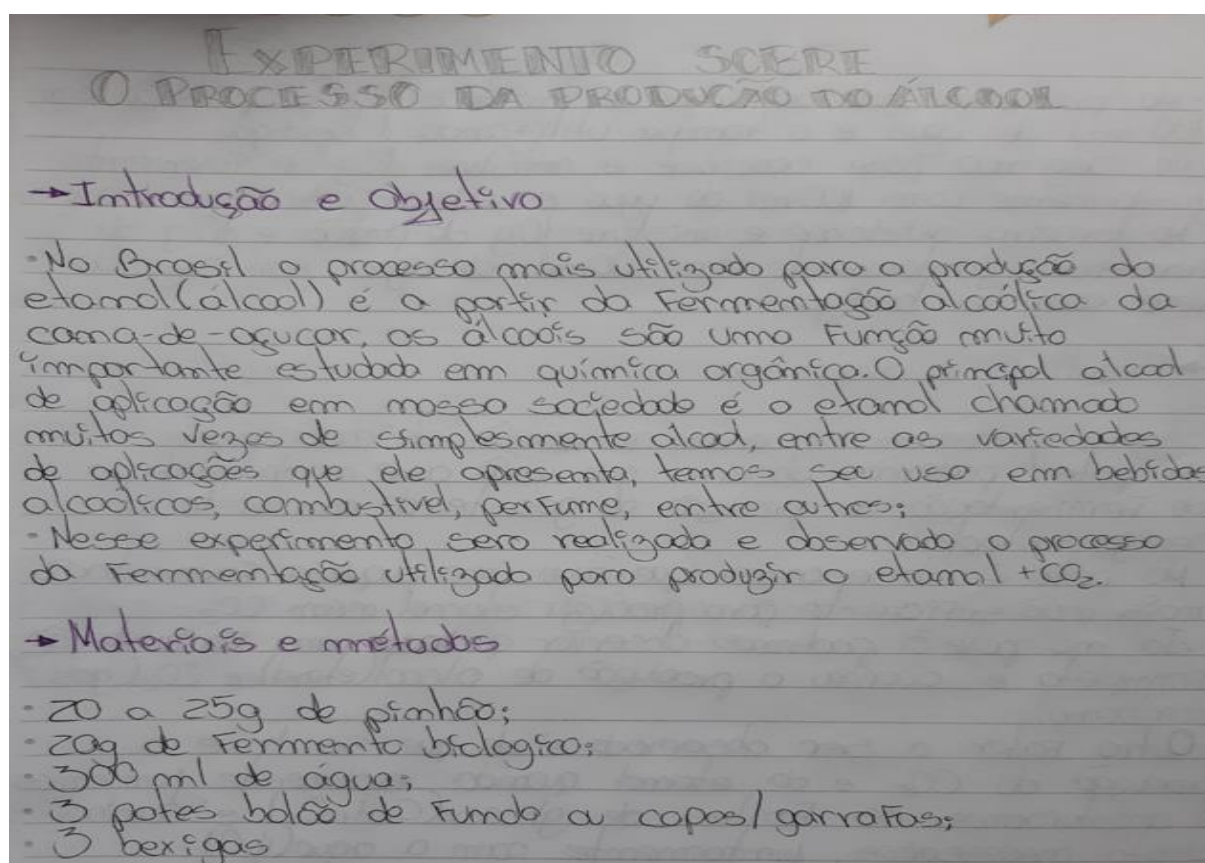 EXPERIMENTO SOBRE
O PROCESSO DA PRODUÇÃO DO ÁLCOOL
→Introdução e Objetivo
·No Brasil o processo mais utilizado para a produção do
etanol(álcool) é a partir da Fermentação alcoólica da
cana-de-açucar, os álcoois são uma Função muito
importante estudada em química orgânica. O principal alcool
de aplicação em nossa sociedade é o etanol chamado
muitas vezes de simplesmente álcool, entre as variedades
de aplicações que ele apresenta, temos seu uso em bebidas
alcoólicas, combustivel, perfume, entre outros;
·Nesse experimento sera realizada e observado o processo
da Fermentação utilizado para produzir o etanol +CO₂.
→Materiais e métodos
·20 a 25g de pinhão;
·20g de Fermento biologico;
·300 ml de água;
·3 potes balão de Fundo ou copos/garrafas;
·3 bexigas